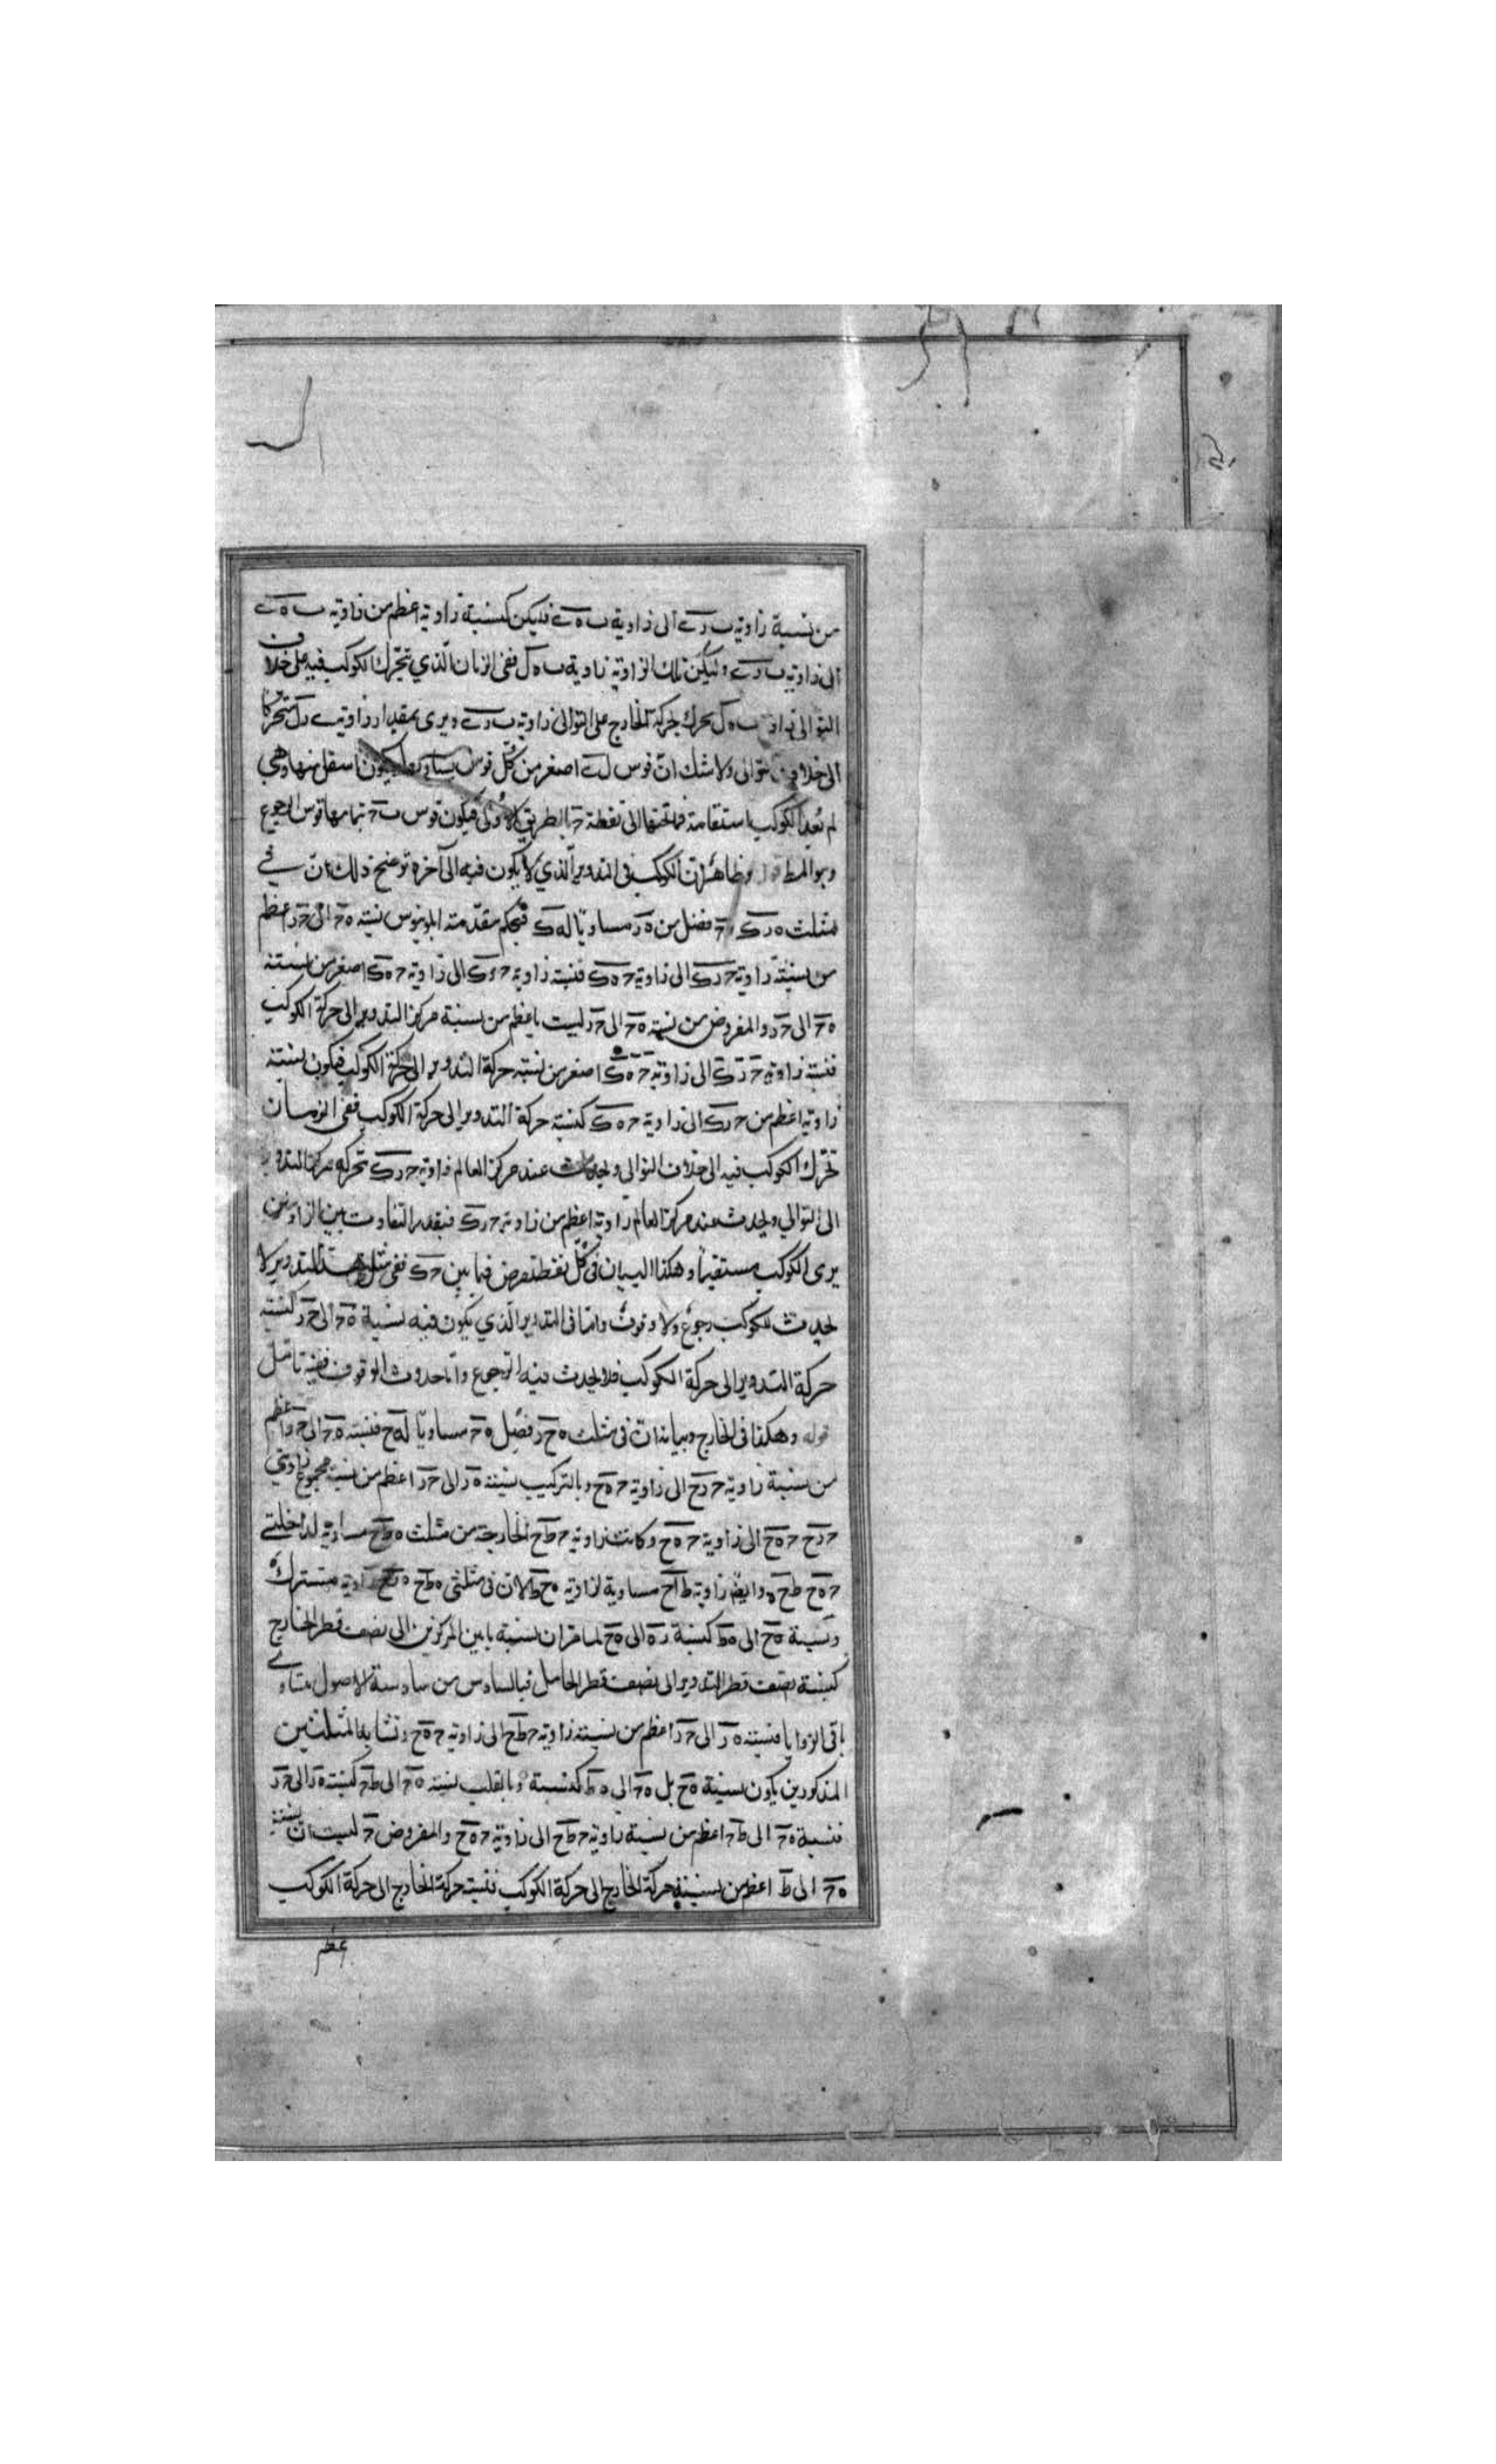 من نسبة زاوية ب ر ے الى زاوية ب ه ے فليكن كنسبة زاوية اعظم من زاوية ب ه ے
الى زاوية ب ر ے وليكن تلك الزاوية زاوية ب ه ل ففى الزمان الذي تحرك الكوكب فيه على خلاف
التوالى زاوية ب ه ل تحرك بحركة الخارج على التوالى زاوية ب ر ے ويرى بمقدار زاوية ے ر ل متحركا
الى خلاف التوالى ولا شك ان قوس ل ے اصغر من كل قوس اسفل منها وهى
لم بعد الكوكب استقامة فما تحتها الى نقطة ح بالطريق الاولى فيكون قوس ب ح بتمامها قوس الرجوع
وهو المط قوله وظاهر ان الكوكب فى التدوير الذي لا يكون فيه الى آخره توضيح ذلك ان في
مثلث ه ر ك ه ح فضل من ه ر مساويا له ك فبحكم مقدمة ابلونيوس نسبة ه ح الى ح ر اعظم
من نسبة زاوية ح ر ك الى زاوية ح ه ك فنسبة زاوية ح ر ك الى زاوية ح ه ك اصغر من نسبة
ه ح الى ح ر والمفروض من نسبة ه ح الى ح ر ليست باعظم من نسبة مركز التدوير الى حركة الكوكب
فنسبة زاوية ح ر ك الى زاوية ح ه ك اصغر من نسبة حركة التدوير الى حركة الكوكب فيكون نسبة
زاوية اعظم من ح ر ك الى زاوية ح ه ك كنسبة حركة التدوير الى حركة الكوكب ففى الزمان
تحرك الكوكب فيه الى خلاف التوالى ويحدث عند مركز العالم زاوية ح ر ك تحركه مركز التدوير
الى التوالي ويحدث عند مركز العالم زاوية اعظم من زاوية ح ر ك فبقدر التفاوت بين الزاويتين
يرى الكوكب مستقيما وهكذا البيان فى كل نقطة تفرض فيما بين ح ك ففى مثل هذا التدوير لا
يحدث للكوكب رجوع ولا وقوف واما فى التدوير الذي يكون فيه نسبة ه ح الى ح ر كنسبة
حركة التدوير الى حركة الكوكب فلا يحدث فيه الرجوع واما حدوث الوقوف ففيه تامل
قوله وهكذا فى الخارج وبيانه ان فى مثلث ه ح ر فضل ه ح مساويا له ح فنسبة ه ح الى ح ر اعظم
من نسبة زاوية ح ر ح الى زاوية ح ه ح وبالتركيب نسبة ه ر الى ح ر اعظم من نسبة مجموع زاويتي
ح ر ح ح ه ح الى زاوية ح ه ح وكانت زاوية ح ط ح الخارجة من مثلث ه ط ح مساوية لداخلتي
ح ه ح ط ح ه وايضا زاوية ط ا ح مساوية لزاوية ه ح ط لان فى مثلثى ه ط ح ه ر ح زاوية ه مشتركة
ونسبة ه ح الى ه ط كنسبة ر ه الى ه ح لما مر ان نسبة ما بين المركزين الى نصف قطر الخارج
كنسبة نصف قطر التدوير الى نصف قطر الحامل فبالسادس من سادسة الاصول متساوي
باقى الزوايا فنسبة ه ر الى ح ر اعظم من نسبة زاوية ح ط ح الى زاوية ح ه ح وتشابه المثلثين
المذكورين يكون نسبة ه ح بل ه ح الى ه ط كنسبة وبالقلب نسبة ه ح الى ط ح كنسبة ه ر الى ح ر
فنسبة ه ح الى ط ح اعظم من نسبة زاوية ح ط ح الى زاوية ح ه ح والمفروض ح ليست ان نسبة
ه ح الى ط اعظم من نسبة حركة الخارج الى حركة الكوكب فنسبة حركة الخارج الى حركة الكوكب
اعظم